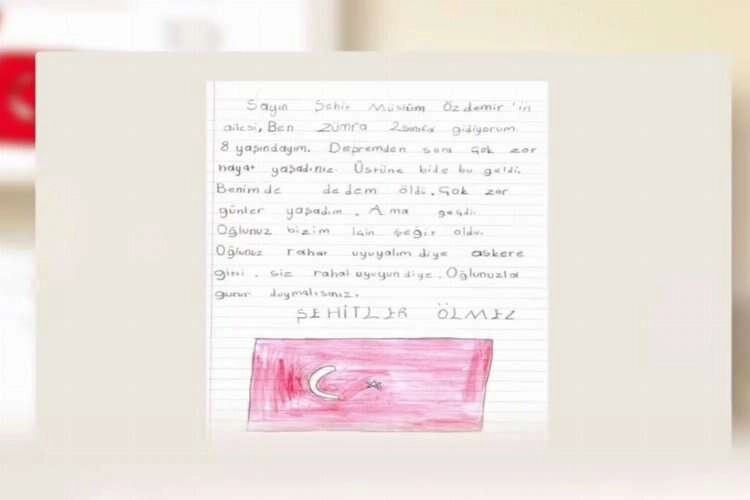 Sayın Şehir Müslüm Özdemir'in
ailesi, Ben Zümra 2sınıfa gidiyorum
8 yaşındayım. Depremden sora çok zor
hayat yaşadınız. Üstüne bide bu geldi.
Benimde dedem öldü. Çok zor
günler yaşadım. Ama geçdi.
Oğlunuz bizim için şeğir oldu.
Oğlunuz rahat uyuyalım diye askere
gitti. siz rahat uyuyun diye. Oğlunuzla
gurur duymalısınız.
ŞEHİTLER ÖLMEZ